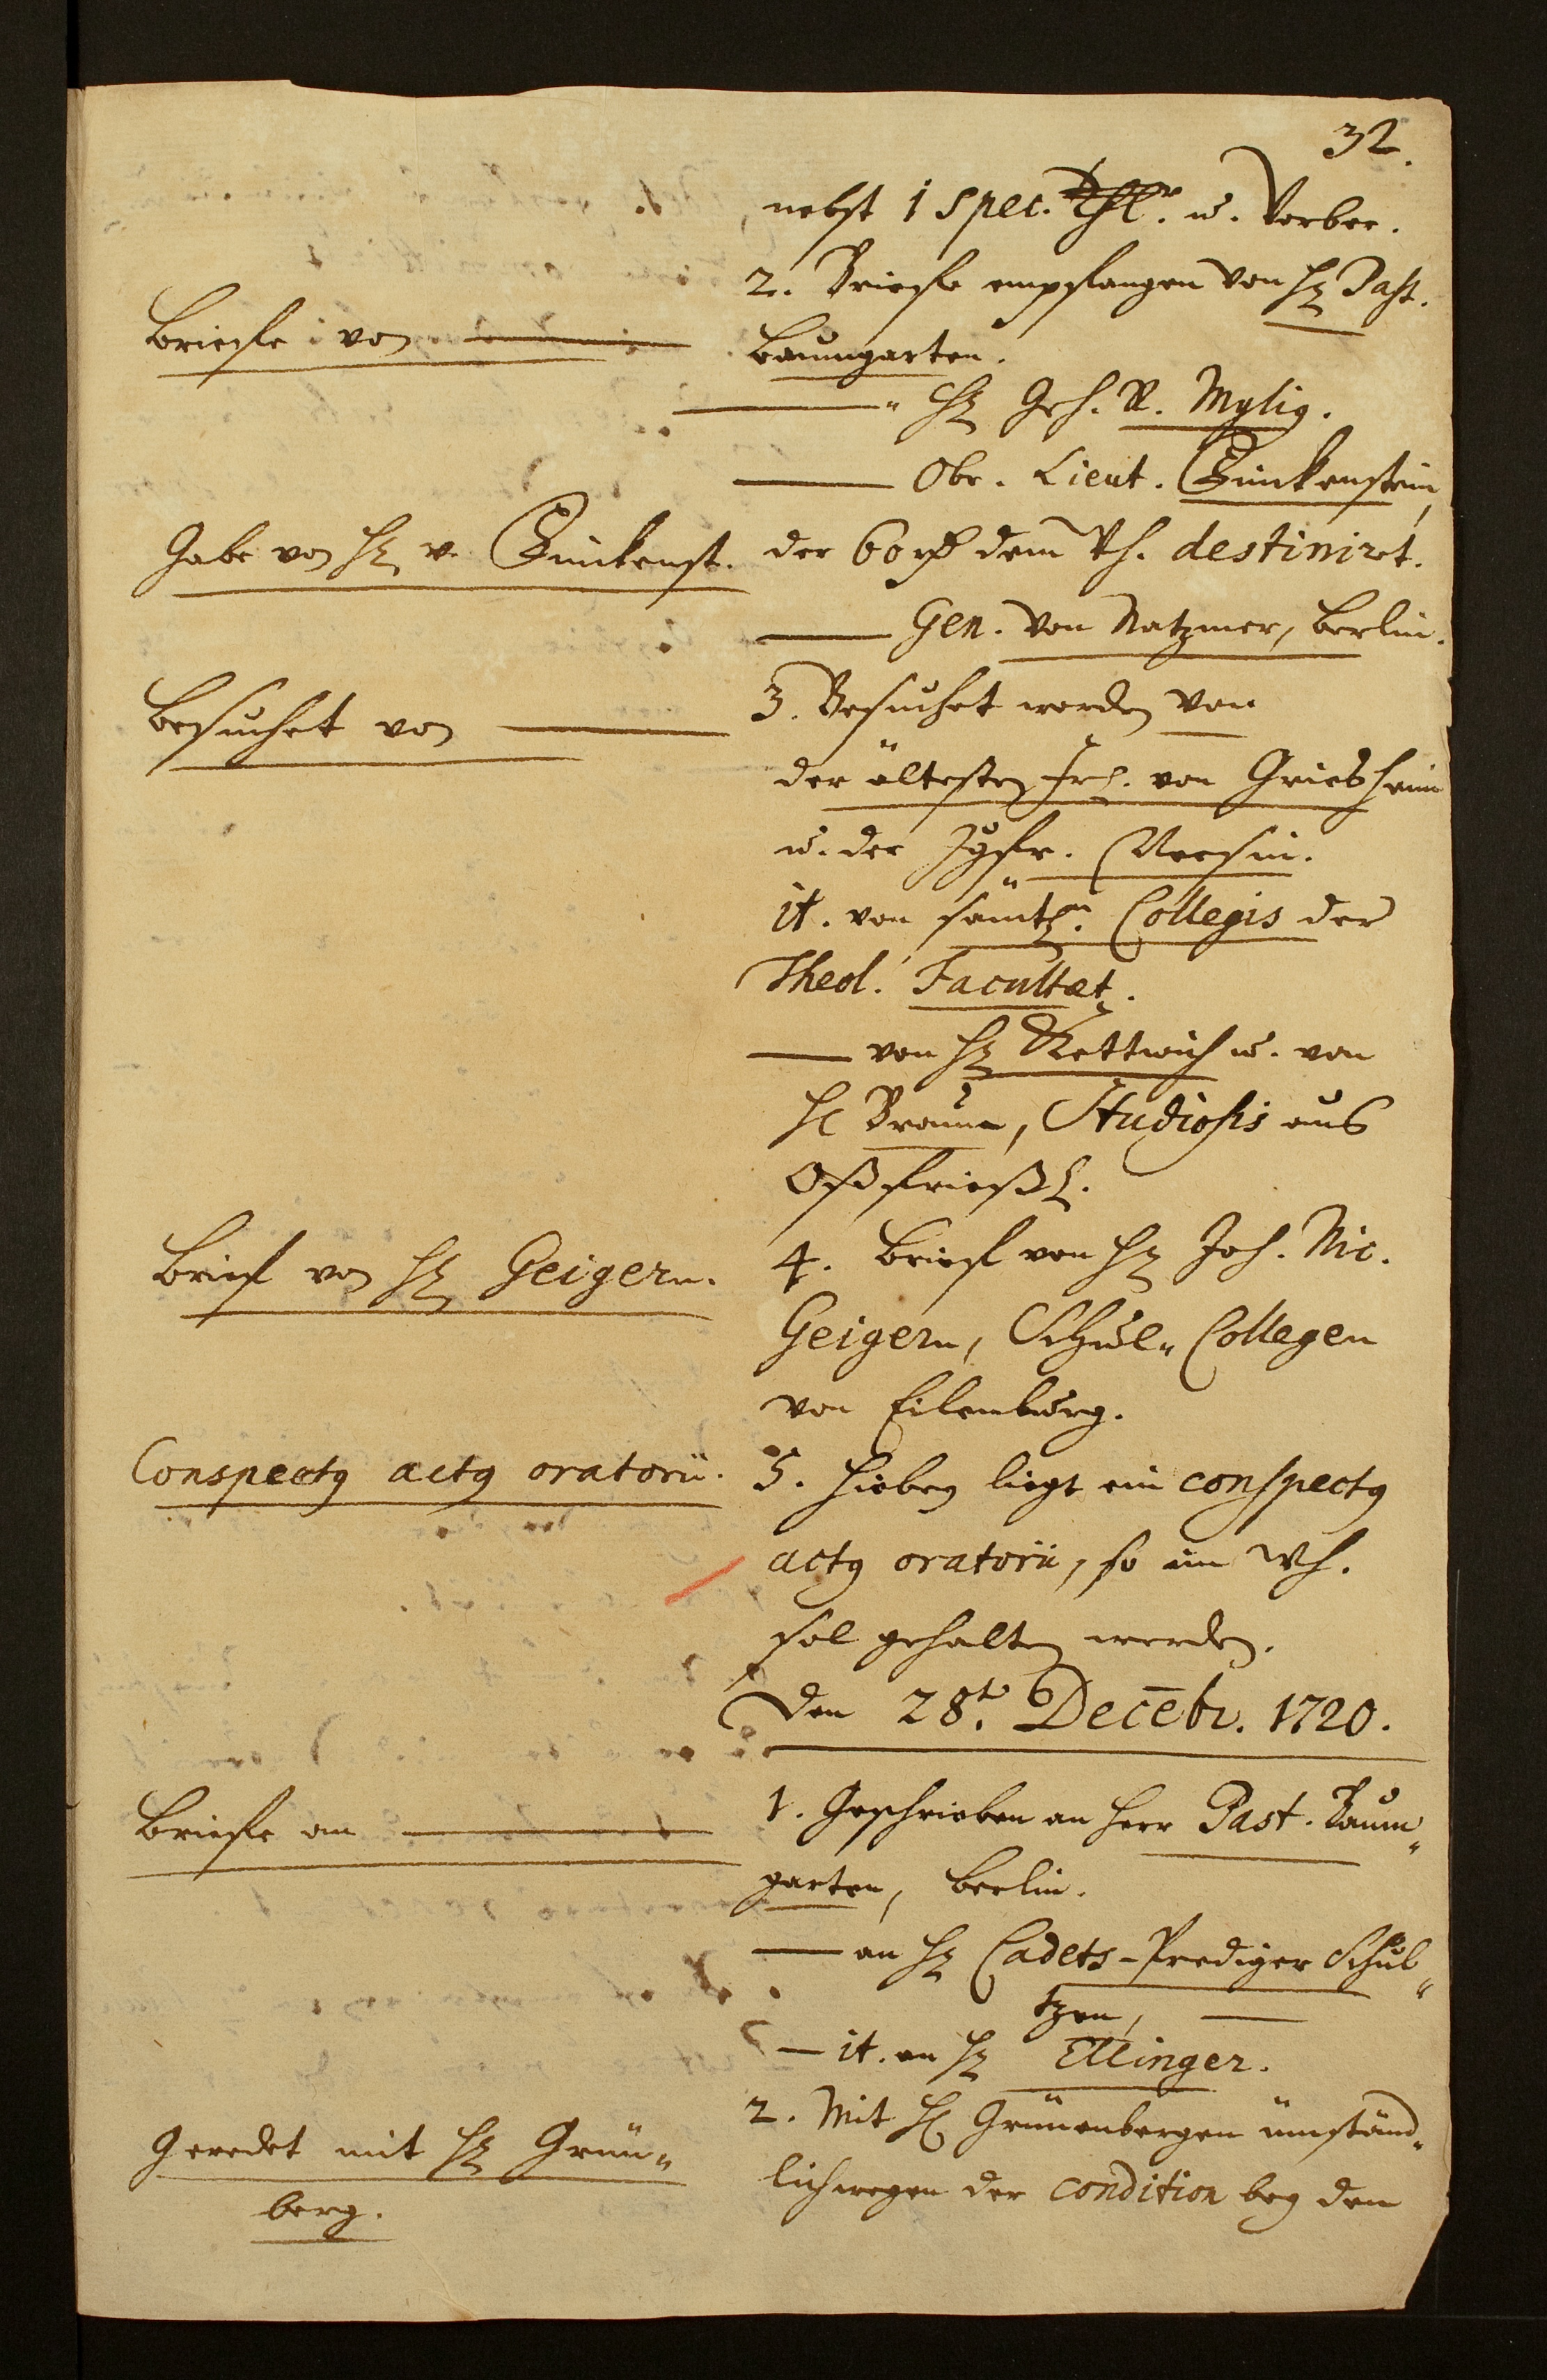 32.
nebst 1 spec. Thlr. u. Vorber.
2. Briefe empfangen von H. Past.
Briefe von
Baumgarten.
H. Geh. R. Mylig.
Obr. Lieut. Finckenstein,
Gabe von H. v. Finckenst.
der 60 rth dem Wh. destiniret.
Gen. von Natzmer, Berlin.
Besuchet von
3. Besuchet worden von
der ältesten Frl. von Griesheim
u. der Jgfr.
it. von sämtl. Collegis der
Theol. Facultæt.
von H. Rettwich u. von
H. Braun, Studiosis aus
Ostfrießl.
Brief von H. Geigern.
4. Brief von H. Joh. Nic.
Geigern, Schul-Collegen
von Eilenburg.
Conspectus actus oratorii.
5. Hiebey liegt ein conspectus
actus oratorii, so im Wh.
sol gehalten werden.
Den 28t. Decebr. 1720.
Briefe an
1. Geschrieben an Herr Past. Baum-
garten, Berlin.
an H. Cadets-Prediger Schul-
tzen,
it. an H. Ellinger.
Geredet mit H. Grün-
berg.
2. Mit H. Grünenbergen ümständ-
lich wegen der condition bey dem